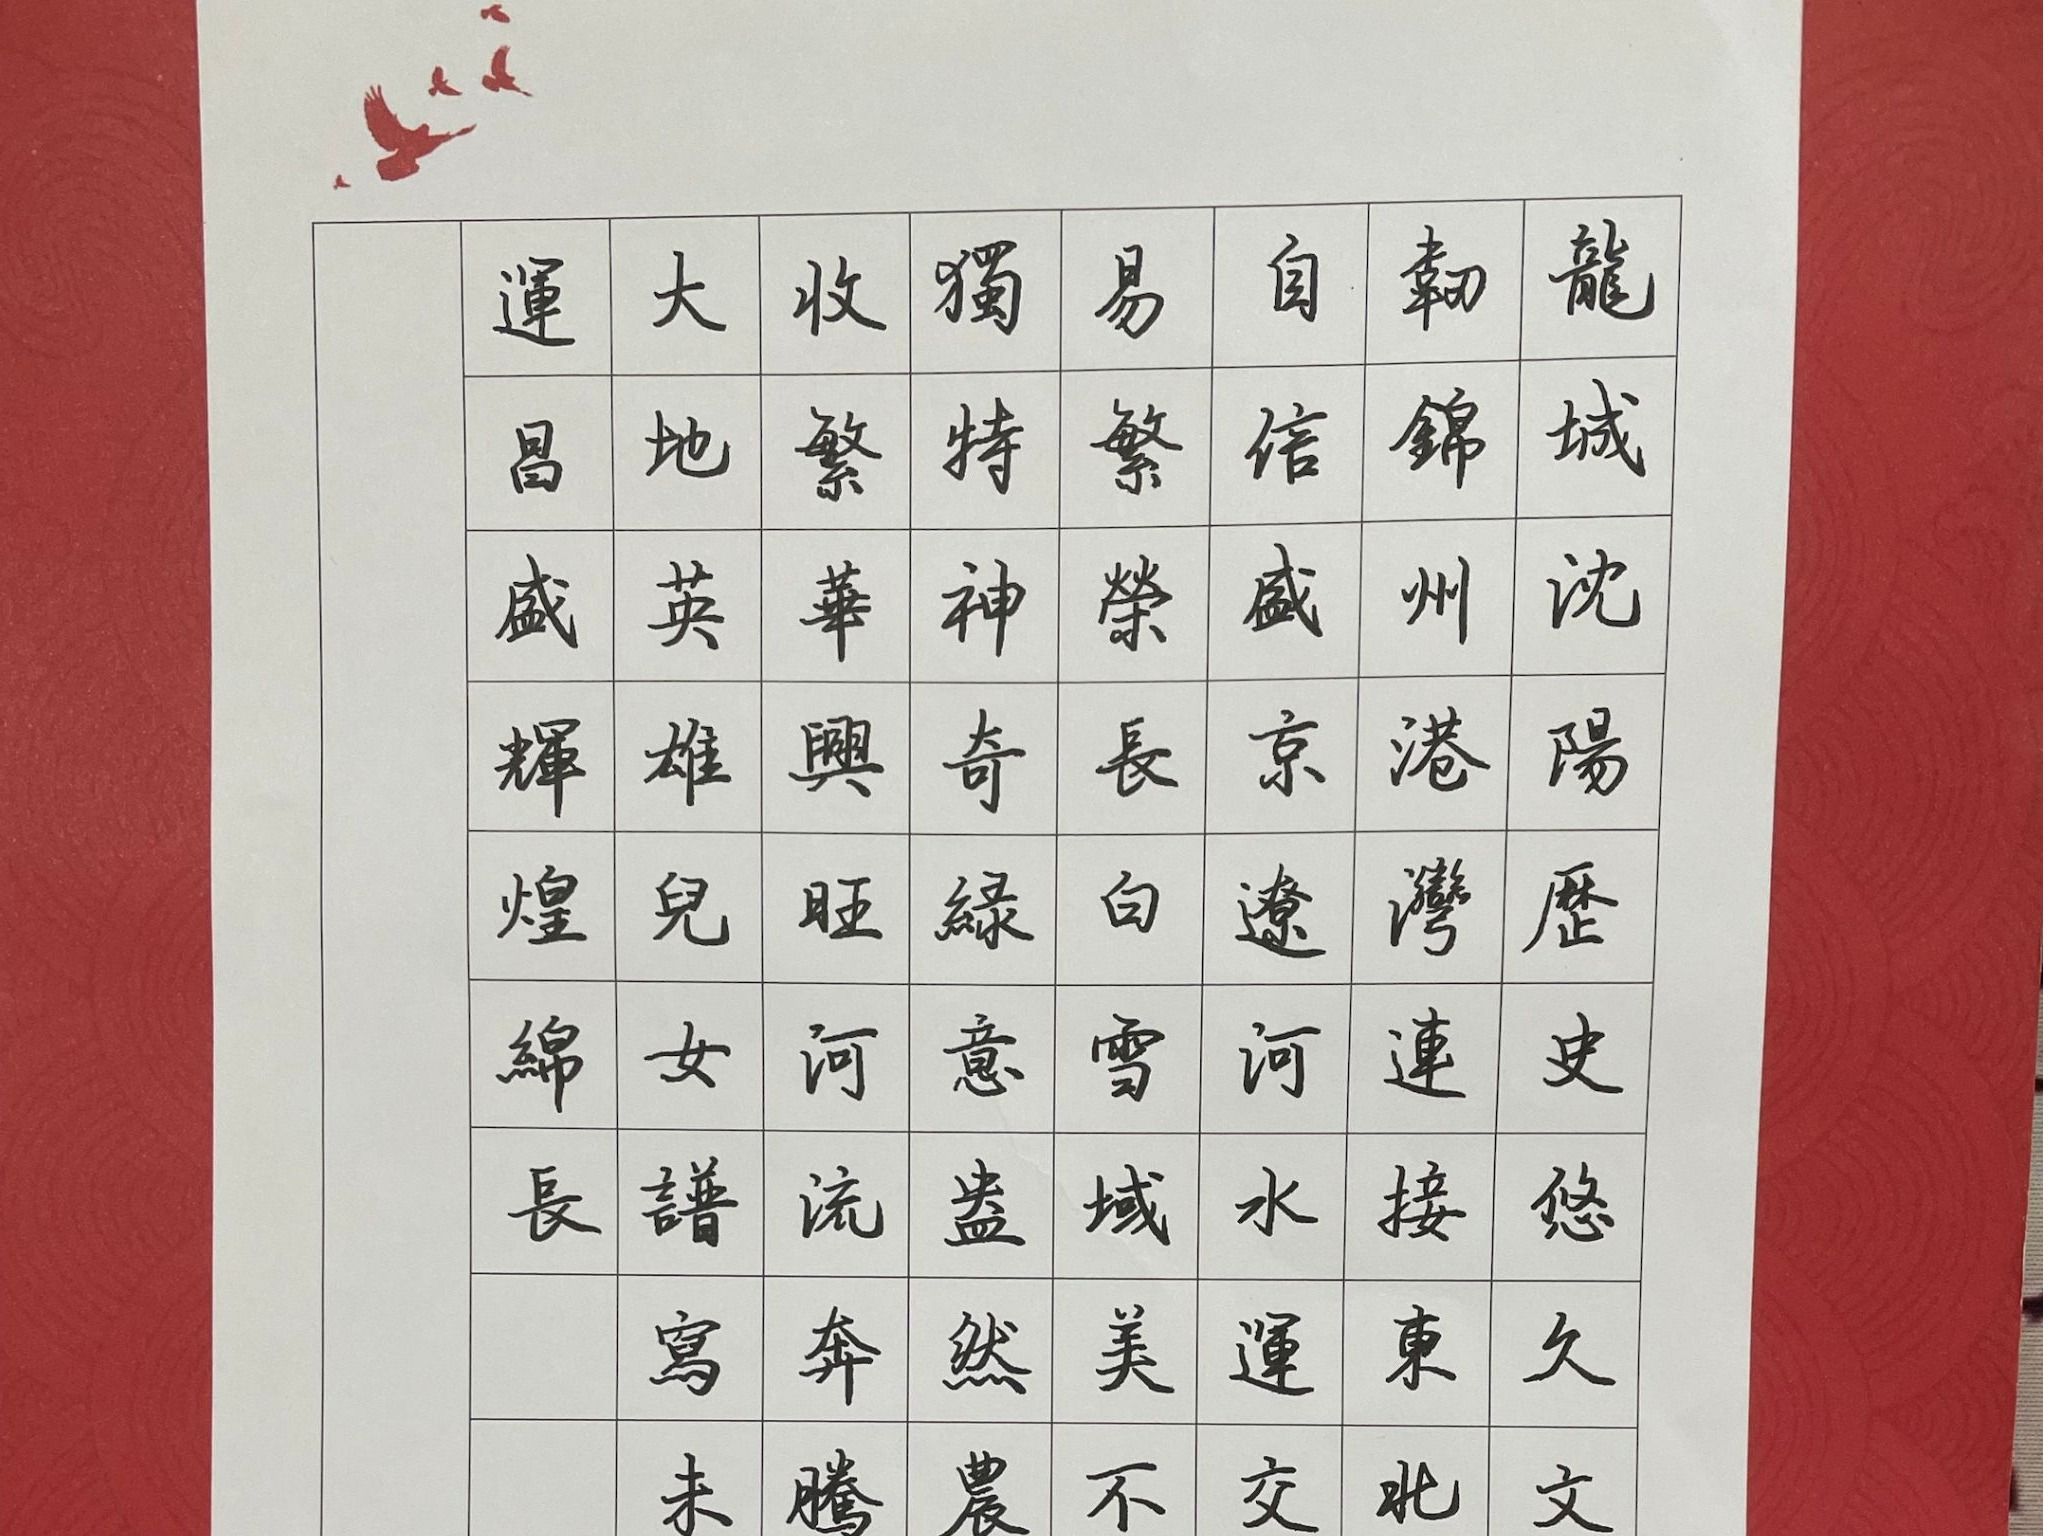 龍城沈陽歷史悠久文
韌錦州港灣連接東北
自信盛京遼河水運交
易繁榮長白雪域美不
獨特神奇綠意盎然農
收繁華興旺河流奔騰
大地英雄兒女譜寫未
運昌盛輝煌綿長